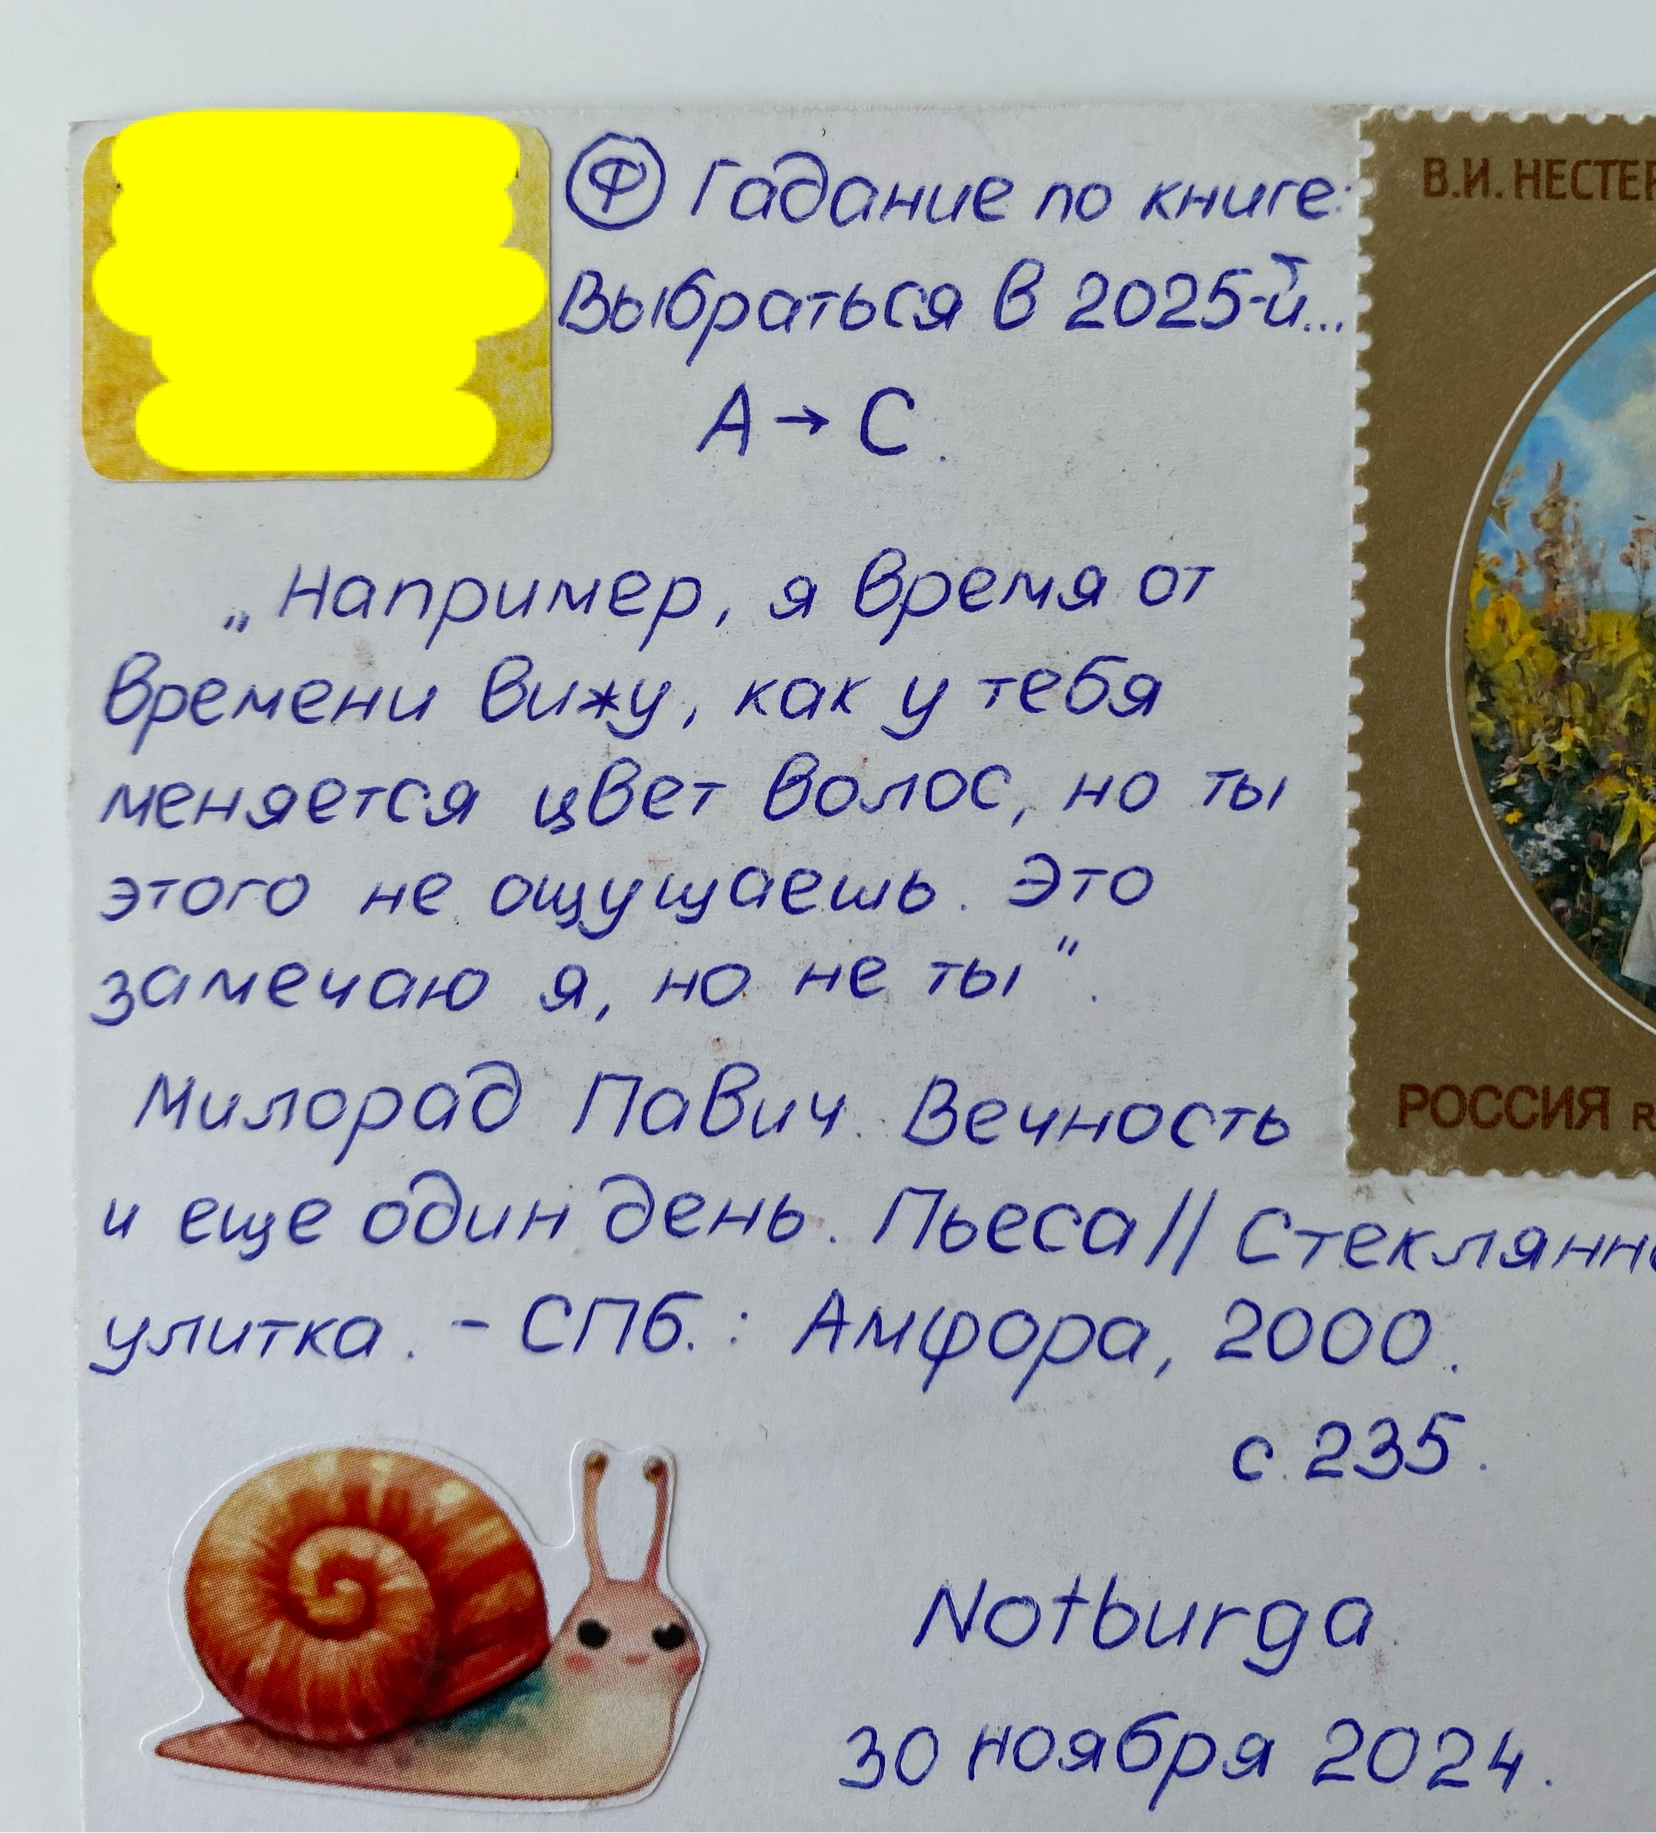 Ⓕ Гадание по книге:
Выбраться в 2025-й...
А → С.
„Например, я время от
времени вижу, как у тебя
меняется цвет волос, но ты
этого не ощущаешь. Это
замечаю я, но не ты".
Милорад Павич. Вечность
и еще один день. Пьеса // Стеклянн
улитка. - СПб.: Амфора, 2000.
с. 235.
Notburga
30 ноября 2024.
В.И. НЕСТЕР
РОССИЯ R